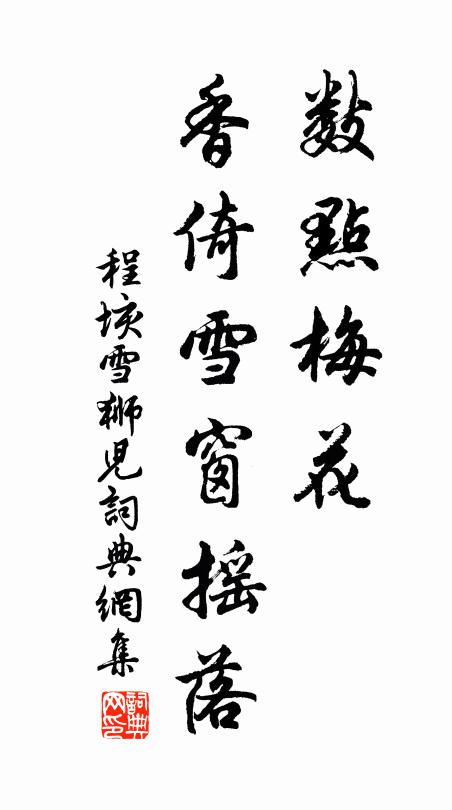 數點梅花
香倚雪窗摇落
程垓雪獅兒詞典網集
詞典網印